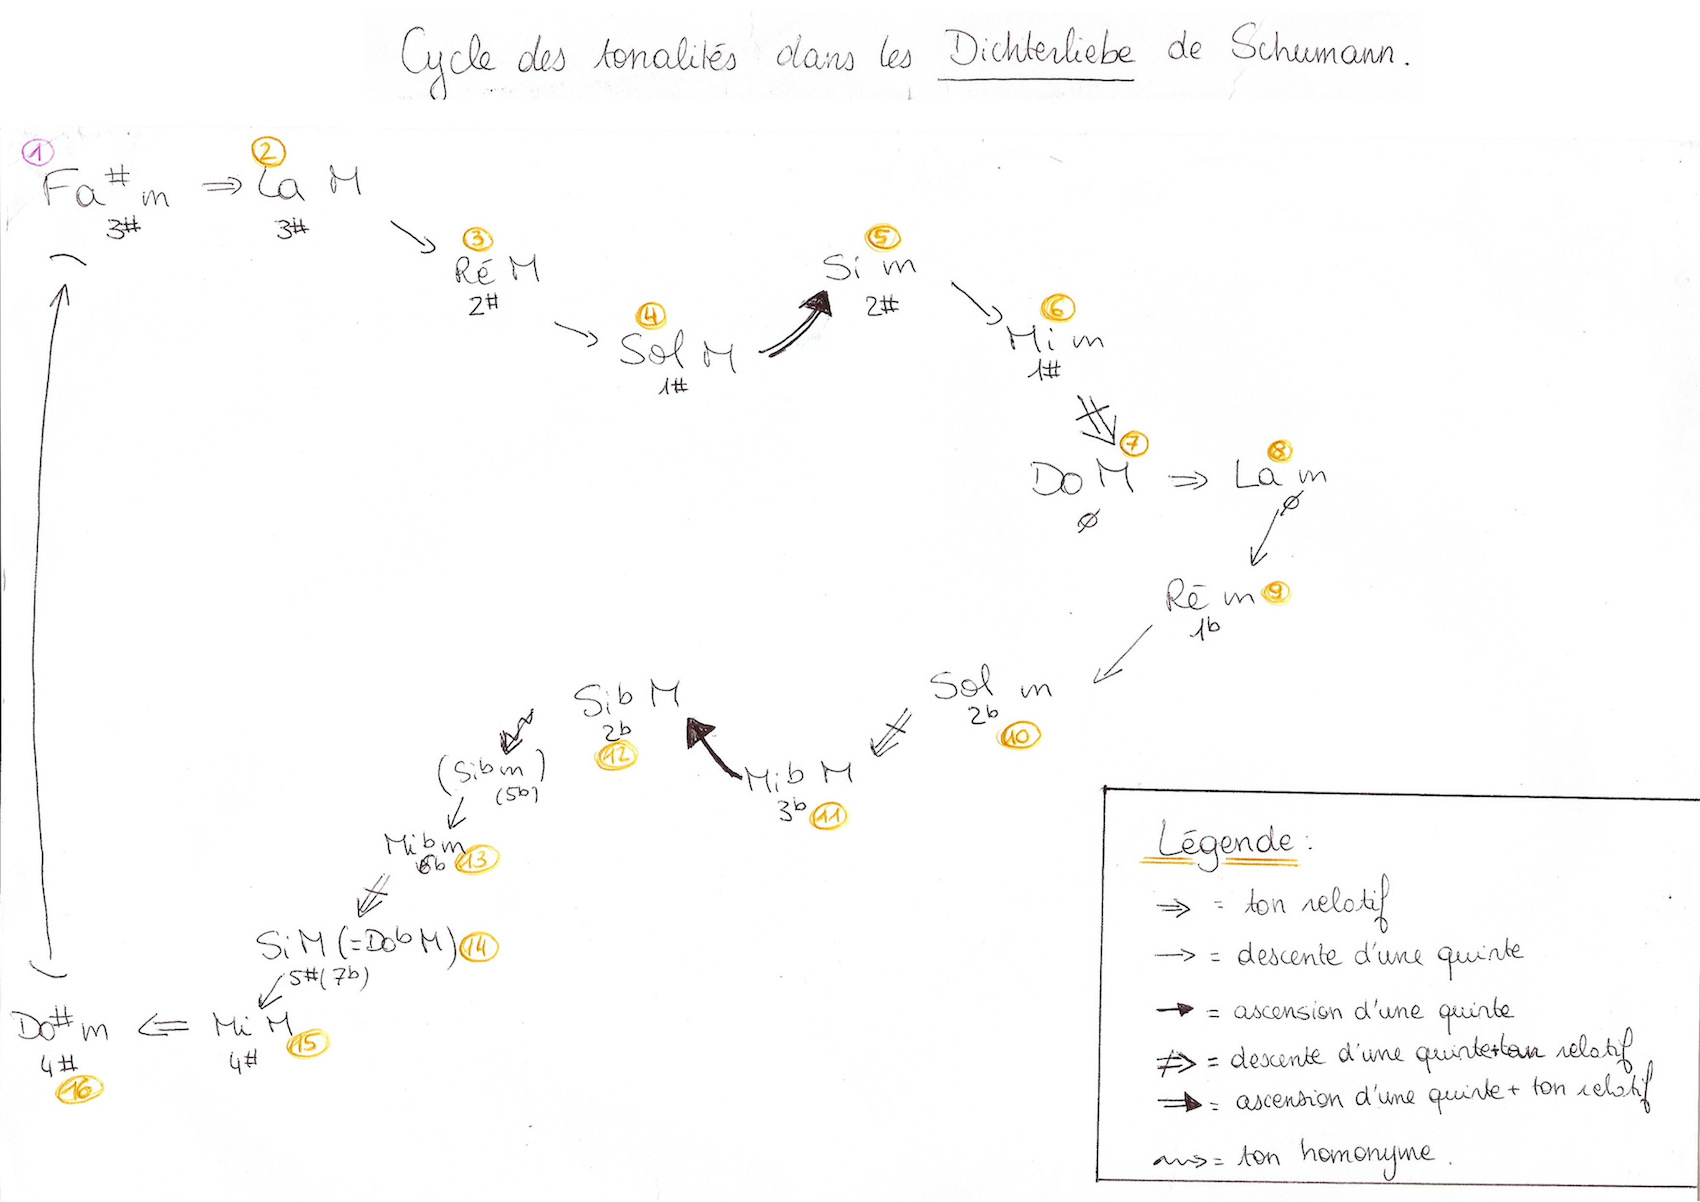 Cycle des tonalités dans les Dichterliebe de Schumann.
1
Fa# m ⇒ La M
2
3#
3#
3
Ré M
2#
4
Sol M
1#
5
Si m
2#
6
Mi m
1#
7
Do M ⇒ La m
8
ø
ø
Ré m 9
1b
Sol m
2b
10
Mib M
3b 11
Sib M
2b
12
(Sibm)
(5b)
Mibm
6b 13
SiM (=Dob M) 14
5# (7b)
Mi M
4# 15
Do# m
4#
16
Légende :
⇒ = ton relatif
→ = descente d'une quinte
→ = ascension d'une quinte
⇏ = descente d'une quinte+ton relatif
⇒ = ascension d'une quinte + ton relatif
⇝ = ton homonyme.